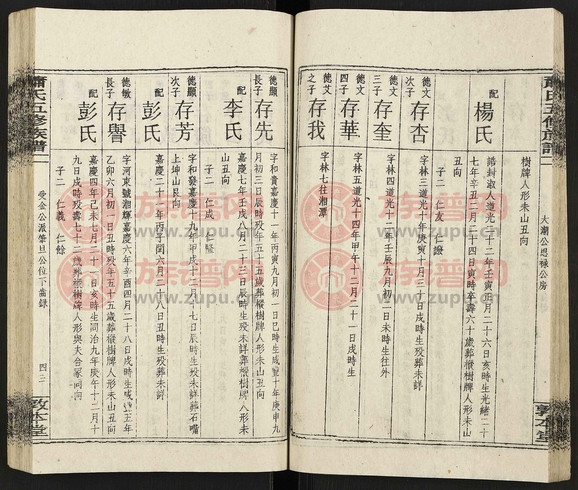 大潮公思祿公房
樹牌人形未山丑向
配 楊氏
誥封淑人道光二十二年壬寅正月二十六日亥時生光緒二十
七年辛丑二月二十四日寅時卒壽六十歲葬樅樹牌人形未山
丑向
子二 仁友 仁謹
德文 次子 存杏
字林三道光十年庚寅十月三十日戌時生歿葬未詳
德文 三子 存奎
字林四道光十二年壬辰九月初二日未時生往外
德艾 四子 存華
字林五道光十四年甲午十二月二十一日戌時生
德艾 之子 存我
字林七往湘潭
蕭氏五修族譜
德顯 長子 存先
字和貴嘉慶十一年丙寅九月初一日巳時生咸豐十年庚申九
月初三日辰時歿年五十五歲葬樅樹牌人形未山丑向
配 李氏
嘉慶七年壬戌八月二十三日辰時生歿未詳葬樅樹牌人形未
山丑向
子二 仁成 仁隆
德顯 次子 存芳
字和發嘉慶十九年甲戌十二月十七日辰時生歿未詳葬石嘴
上坤山艮向
配 彭氏
嘉慶二十一年丙子閏六月二十八日丑時生歿葬未詳
德敏 長子 存譽
字河東號湘輝嘉慶六年辛酉四月二十八日戌時生咸豐五年
乙卯六月初一日丑時歿年五十五歲葬樅樹牌人形未山丑向
配 彭氏
嘉慶四年己未七月二十一日亥時生同治九年庚午十二月十
九日戌時歿壽七十二歲葬樅樹牌人形與夫合冢同向
子二 仁義 仁餘
蕭氏五修族譜
受金公派肇旦公位下齒錄
四三
敦本堂
敦本堂
族譜网
www.zupu.cn
族譜网
www.zupu.cn